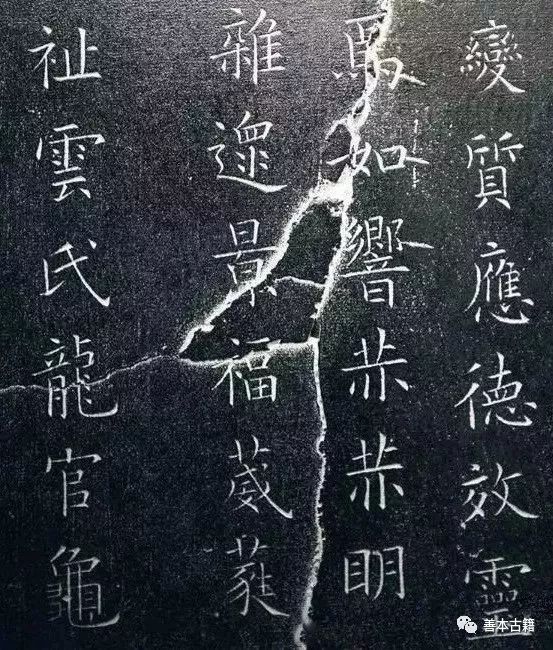 變質應德效靈
焉如響赫赫明
雜遝景福葳蕤
祉雲氏龍官龜
善本古籍